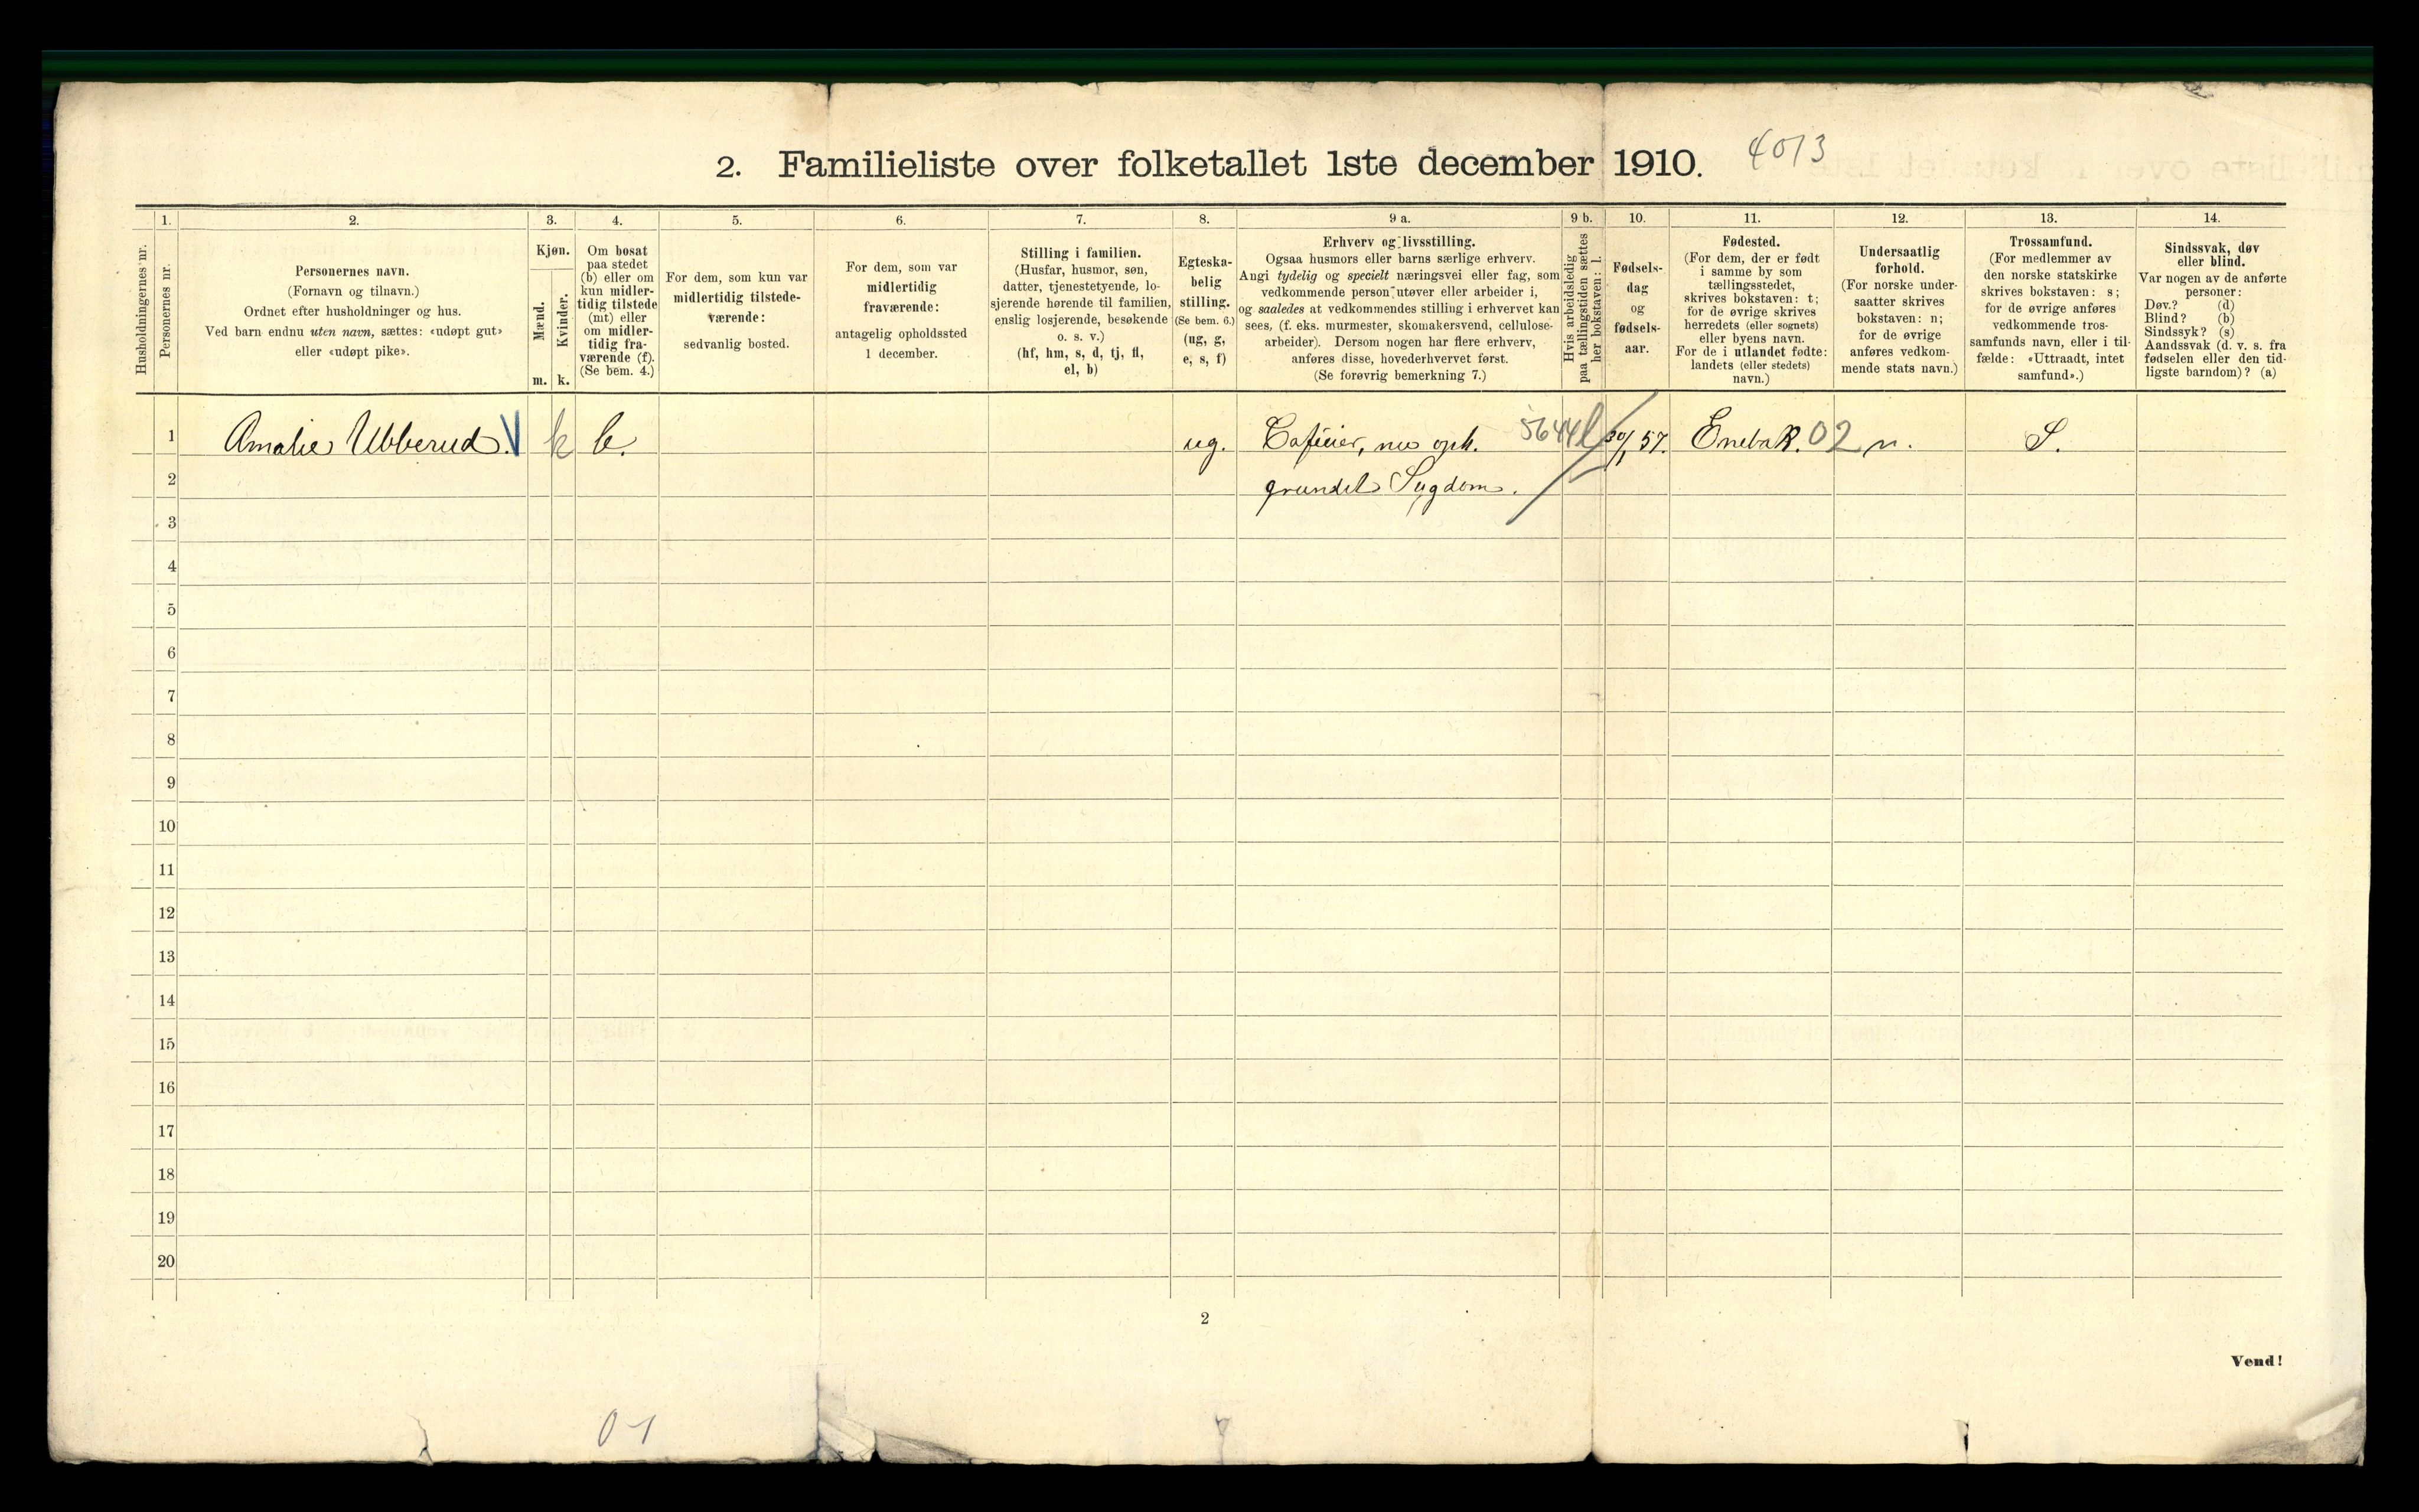 2. Familieliste over folketallet 1ste december 1910. 4013
1. 2. 3. 4. 5. 6. 7. 8. 9 a. 9 b. 10. 11. 12. 13. 14.
Husholdningernes nr.
Personernes nr.
Personernes navn.
(Fornavn og tilnavn.)
Ordnet efter husholdninger og hus.
Ved barn endnu uten navn, sættes: «udøpt gut»
eller «udøpt pike».
Kjøn.
Mænd.
Kvinder.
m. k.
Om bosat
paa stedet
(b) eller om
kun midler-
tidig tilstede
(mt) eller
om midler-
tidig fra-
værende (f).
(Se bem. 4.)
For dem, som kun var
midlertidig tilstede-
værende:
sedvanlig bosted.
For dem, som var
midlertidig
fraværende:
antagelig opholdssted
1 december.
Stilling i familien.
(Husfar, husmor, søn,
datter, tjenestetyende, lo-
sjerende hørende til familien,
enslig losjerende, besøkende
o. s. v.)
(hf, hm, s, d, tj, fl,
el, b)
Egteska-
belig
stilling.
(Se bem. 6.)
(ug, g,
e, s, f)
Erhverv og livsstilling.
Ogsaa husmors eller barns særlige erhverv.
Angi tydelig og specielt næringsvei eller fag, som
vedkommende person utøver eller arbeider i,
og saaledes at vedkommendes stilling i erhvervet kan
sees, (f. eks. murmester, skomakersvend, cellulose-
arbeider). Dersom nogen har flere erhverv,
anføres disse, hovederhvervet først.
(Se forøvrig bemerkning 7.)
Hvis arbeidsledig
paa tællingstiden sættes
her bokstaven: l.
Fødsels-
dag
og
fødsels-
aar.
Fødested.
(For dem, der er født
i samme by som
tællingsstedet,
skrives bokstaven: t;
for de øvrige skrives
herredets (eller sognets)
eller byens navn.
For de i utlandet fødte:
landets (eller stedets)
navn.)
Undersaatlig
forhold.
(For norske under-
saatter skrives
bokstaven: n;
for de øvrige
anføres vedkom-
mende stats navn.)
Trossamfund.
(For medlemmer av
den norske statskirke
skrives bokstaven: s;
for de øvrige anføres
vedkommende tros-
samfunds navn, eller i til-
fælde: «Uttraadt, intet
samfund».)
Sindssvak, døv
eller blind.
Var nogen av de anførte
personer:
Døv? (d)
Blind? (b)
Sindssyk? (s)
Aandssvak (d. v. s. fra
fødselen eller den tid-
ligste barndom)? (a)
1 Amalie Ubberud. k b. ug. 5644 l 30/1 57. Enebak. 02 n. S.
2 grundet Sygdom.
3
4
5
6
7
8
9
10
11
12
13
14
15
16
17
18
19
20
2
Vend!
01